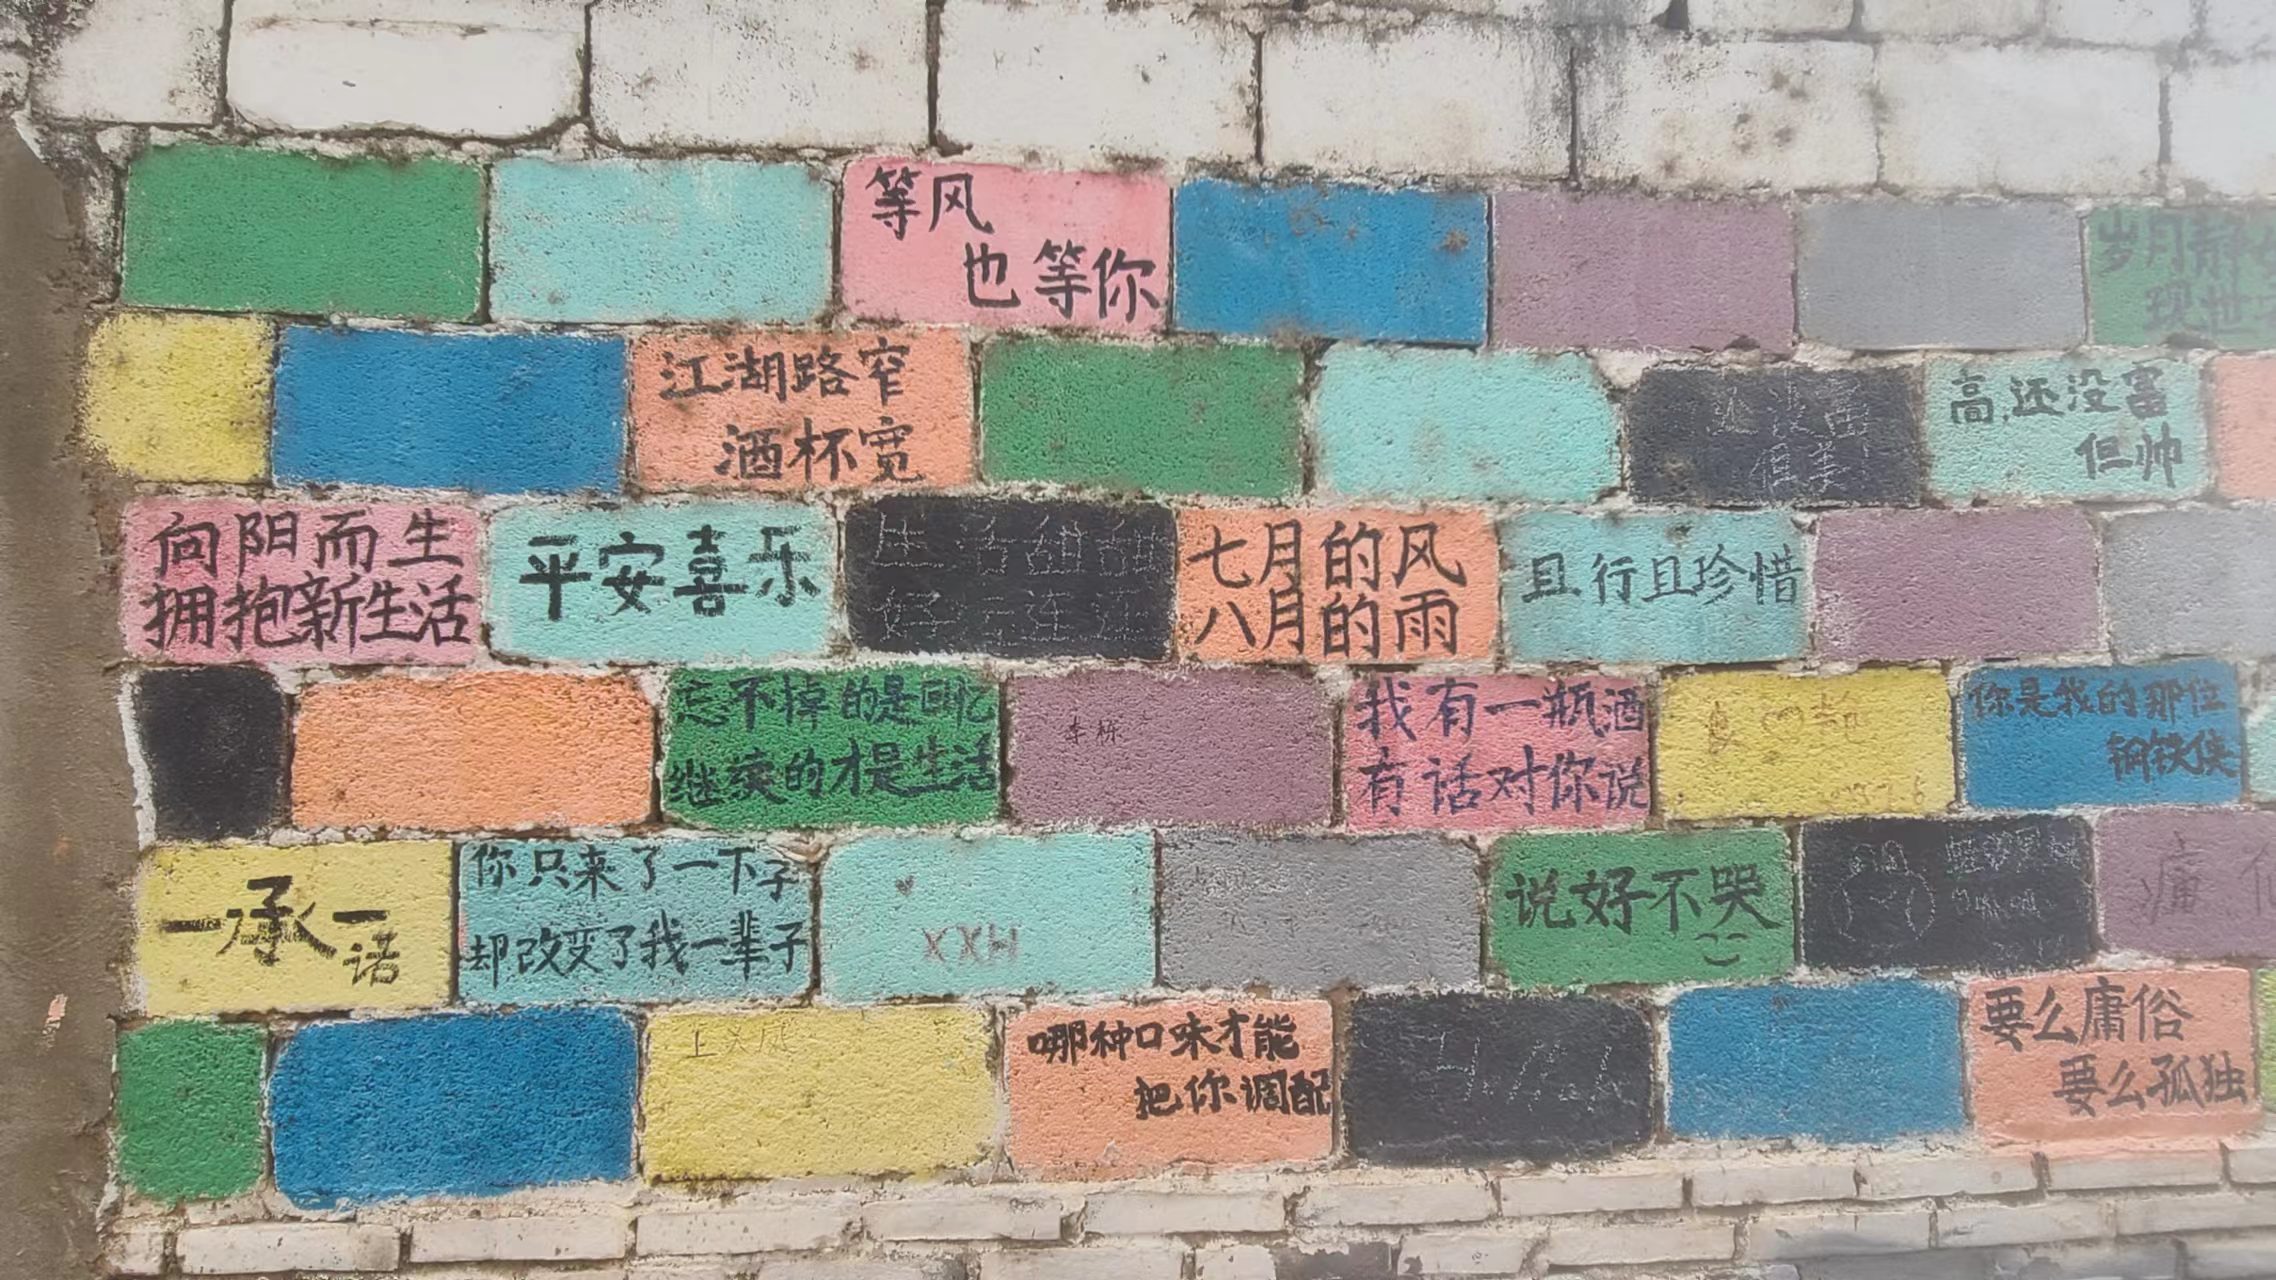 等风
也等你
岁月静
现世
江湖路窄
酒杯宽
还没富
但美
高,还没富
但帅
向阳而生
拥抱新生活
平安喜乐
生活甜甜
好运连连
七月的风
八月的雨
且行且珍惜
忘不掉的是回忆
继续的才是生活
李栎
我有一瓶酒
有话对你说
你是我的那位
钢铁侠
一承一诺
你只来了一下子
却改变了我一辈子
XXH
说好不哭
哪种口味才能
把你调配
要么庸俗
要么孤独